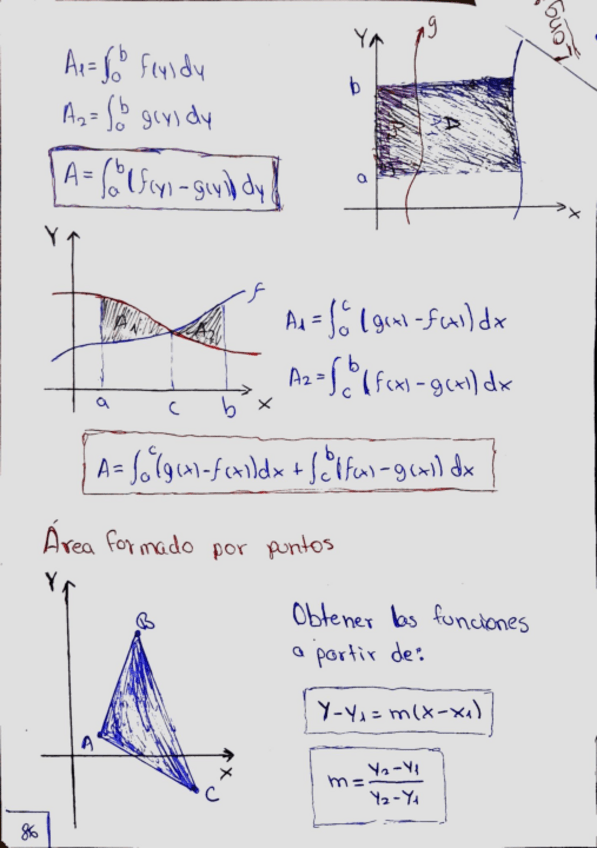 A₁=∫₀ᵇ f(y) dy
A₂=∫₀ᵇ g(y) dy
A=∫ₐᵇ(f(y)-g(y)) dy
Y
g
b
a
A
X
Y
f
A₁
A₂
a c b X
A₁=∫₀ᶜ (g(x)-f(x)) dx
A₂=∫c^b (f(x)-g(x)) dx
A=∫₀ᶜ(g(x)-f(x))dx + ∫c^b(f(x)-g(x)) dx
Área formado por puntos
Y
B
A
X
C
Obtener las funciones
a partir de:
Y-Y₁=m(x-x₁)
m= Y₂-Y₁ / Y₂-Y₁
86